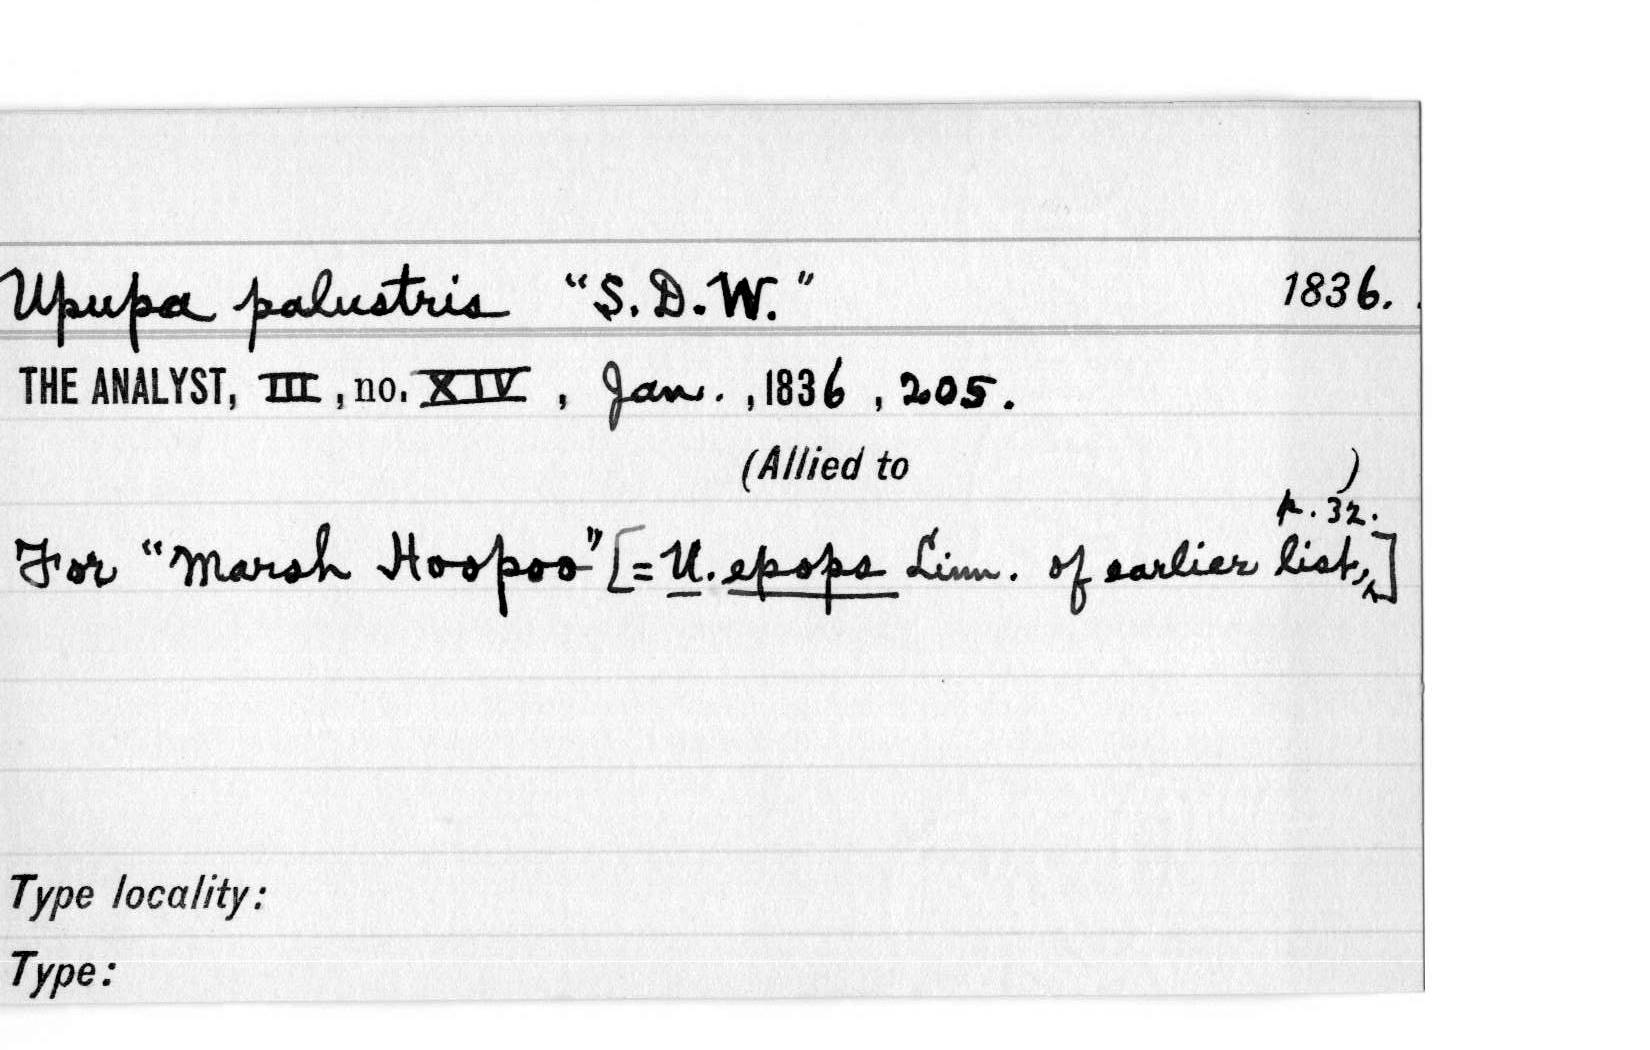 Upupa palustris "S.D.W." 1836.
THE ANALYST, III, no. XIV, Jan., 1836, 205.
(Allied to )
p. 32.
For "Marsh Hoopoo" [= U. epops Linn. of earlier list,]
Type locality:
Type: